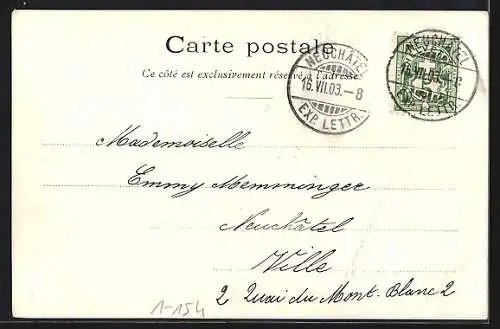 Carte postale
Ce côté est exclusivement réservé à l'adresse.
NEUCHÂTEL
16.VII.03.-8
EXP. LETTR.
NEUCHÂTEL
16.VII.03.-8
EXP. LETTR.
Mademoiselle
Emmy Memminger
Neuchâtel
Ville
2 Quai du Mont. Blanc 2
1-154